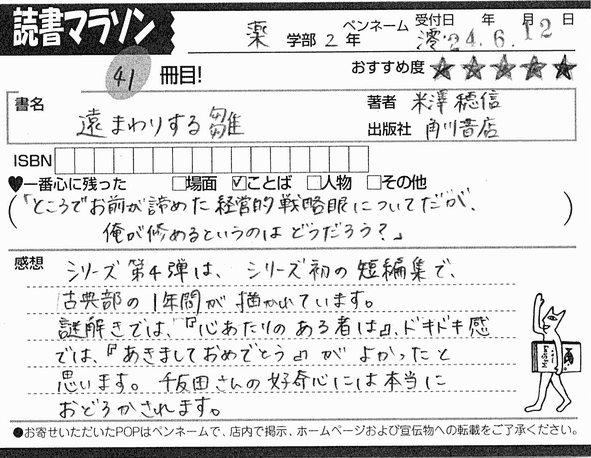 読書マラソン
薬 学部 2 年 ペンネーム 澪 受付日 年 月 日 '24.6.12
41 冊目! おすすめ度 ★★★★★
書名 遠まわりする雛
著者 米澤穂信
出版社 角川書店
ISBN
♥一番心に残った □場面 ☑ことば □人物 □その他
(「ところでお前が諦めた経営的戦略眼についてだが、
俺が修めるというのはどうだろう?」)
感想 シリーズ第4弾は、シリーズ初の短編集で、
古典部の1年間が描かれています。
謎解きでは、『心あたりのある者は』、ドキドキ感
では、『あきましておめでとう』がよかったと
思います。千反田さんの好奇心には本当に
おどろかされます。
●お寄せいただいたPOPはペンネームで、店内で掲示、ホームページおよび宣伝物への転載をご了承ください。